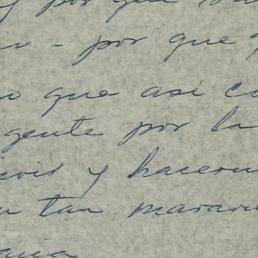 y por que
- por que
que así
gente por la
y hacern
tan marav